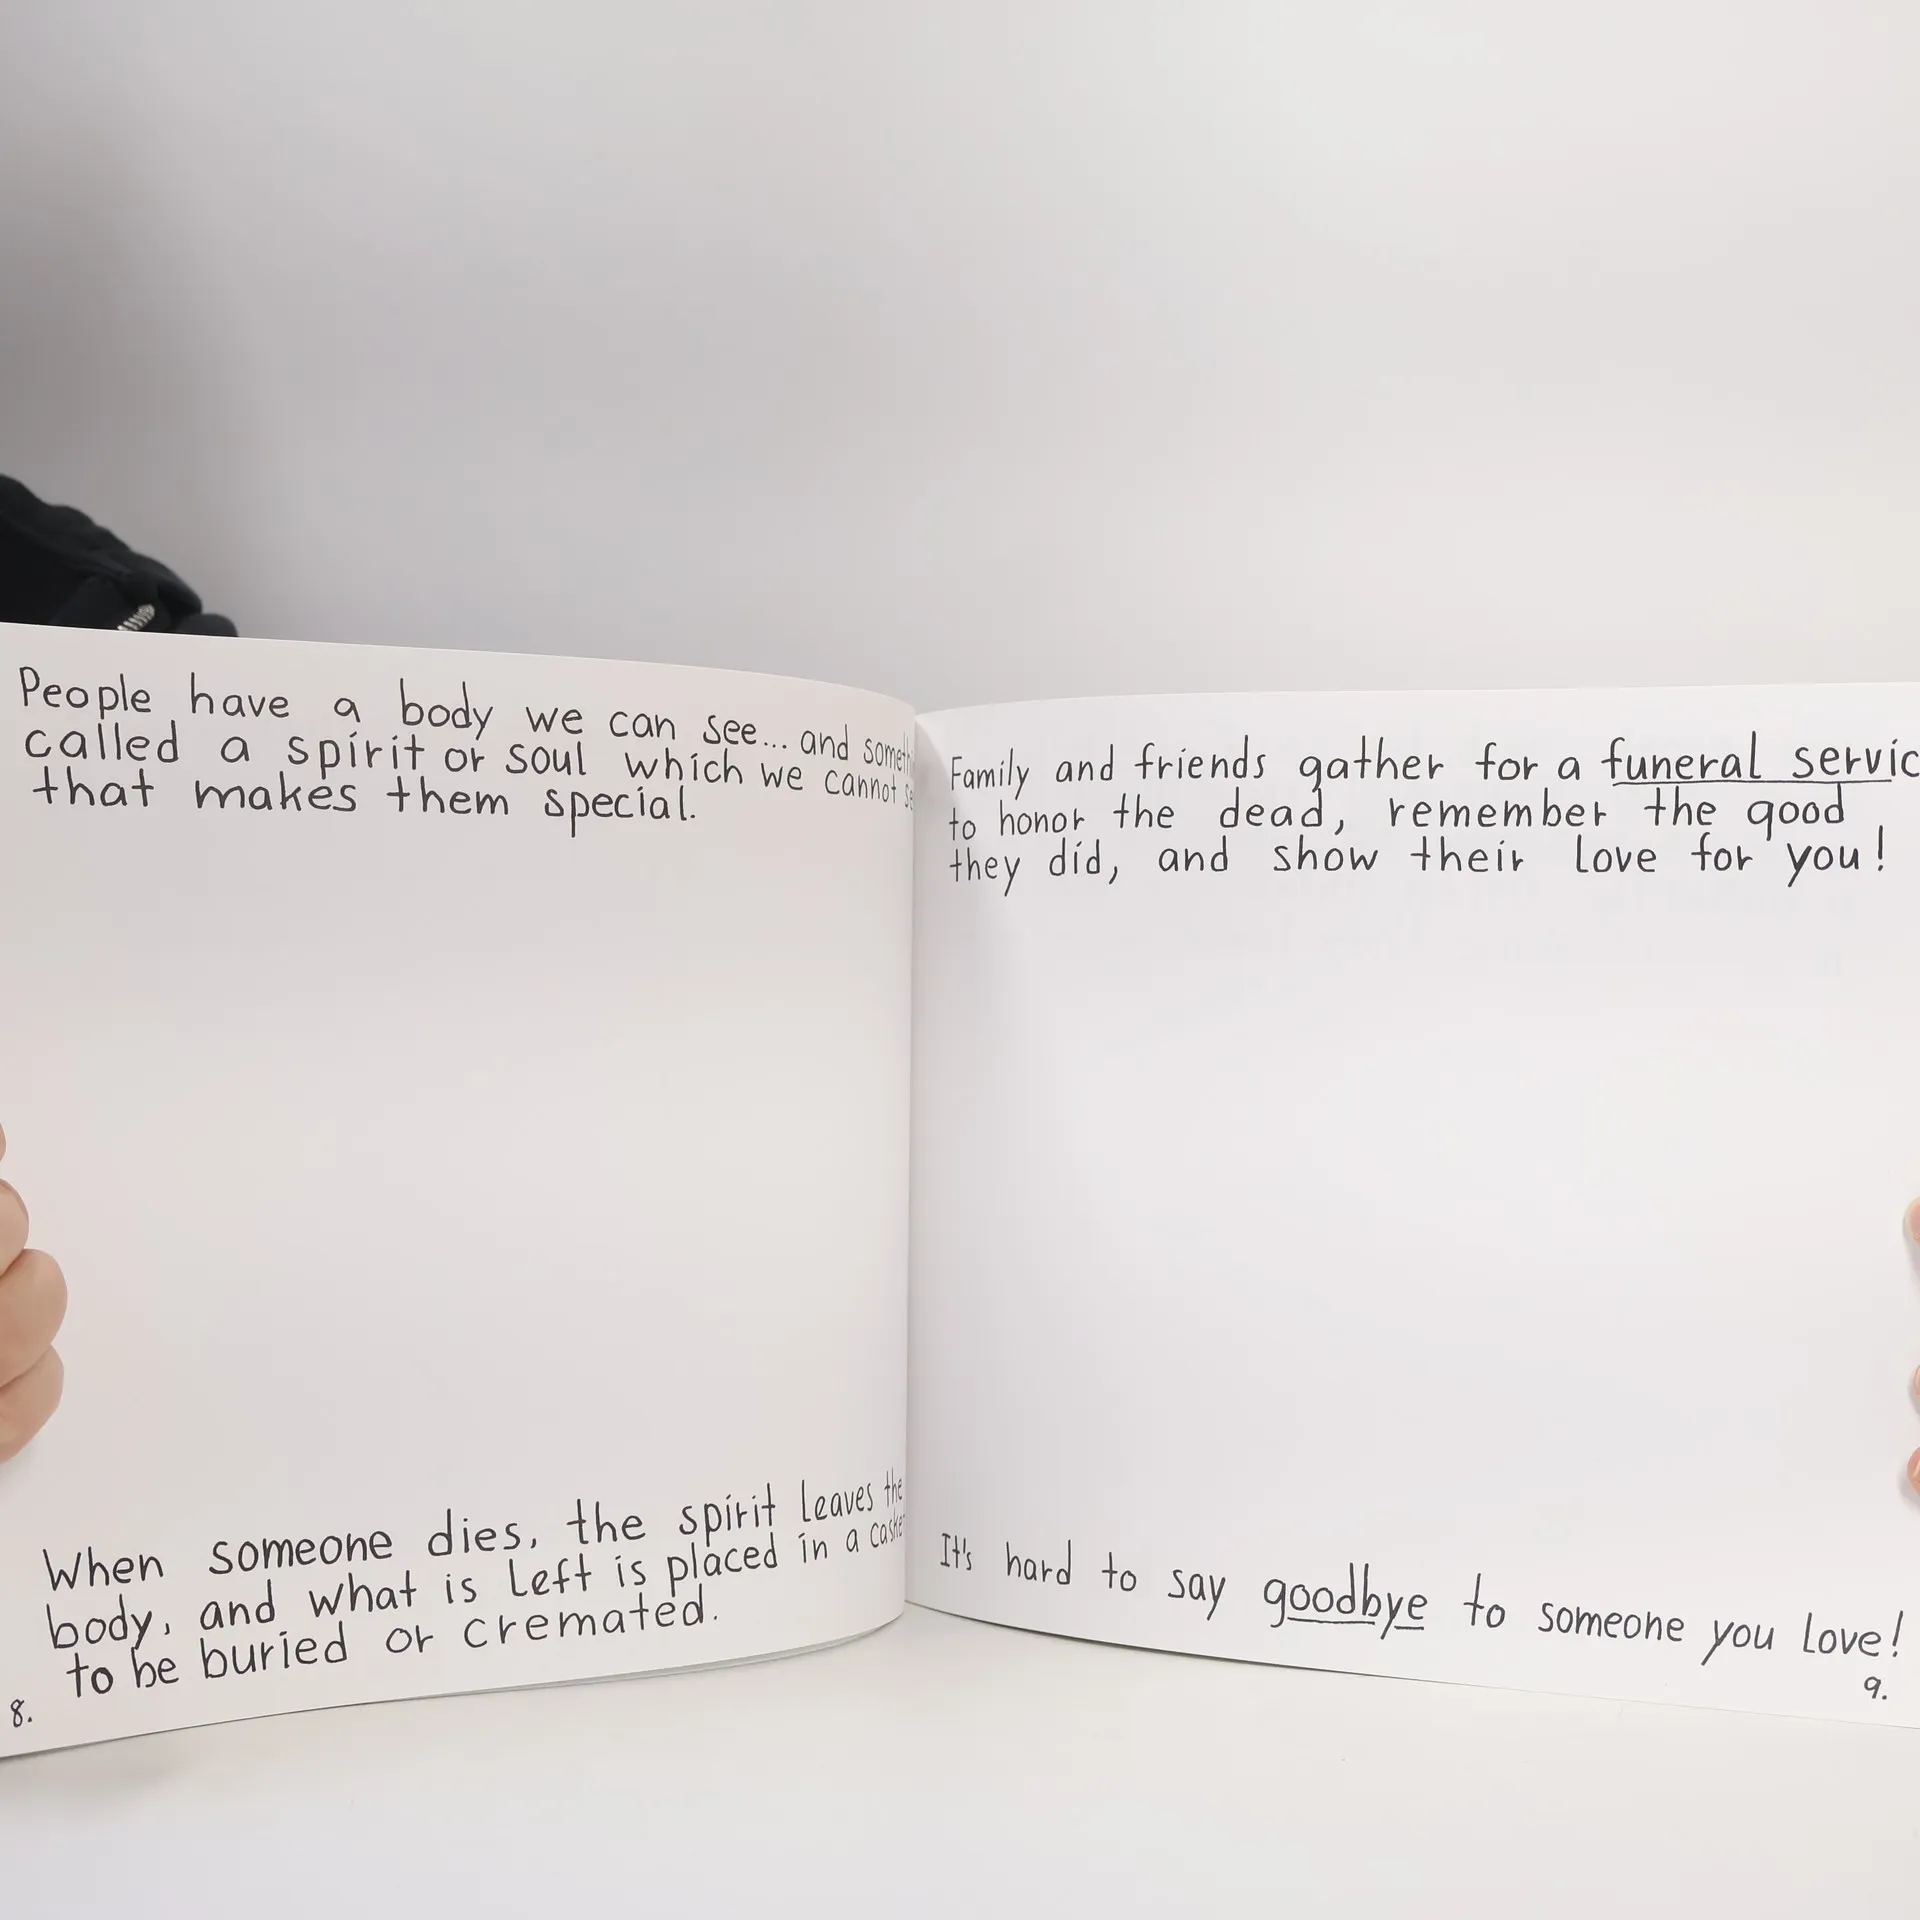 People have a body we can see... and
called a spirit or soul which we cannot
that makes them special.
When someone dies, the spirit leaves the
body, and what is left is placed in a
to be buried or cremated.
8.
Family and friends gather for a funeral
to honor the dead, remember the good
they did, and show their love for you!
It's hard to say goodbye to someone you love!
9.